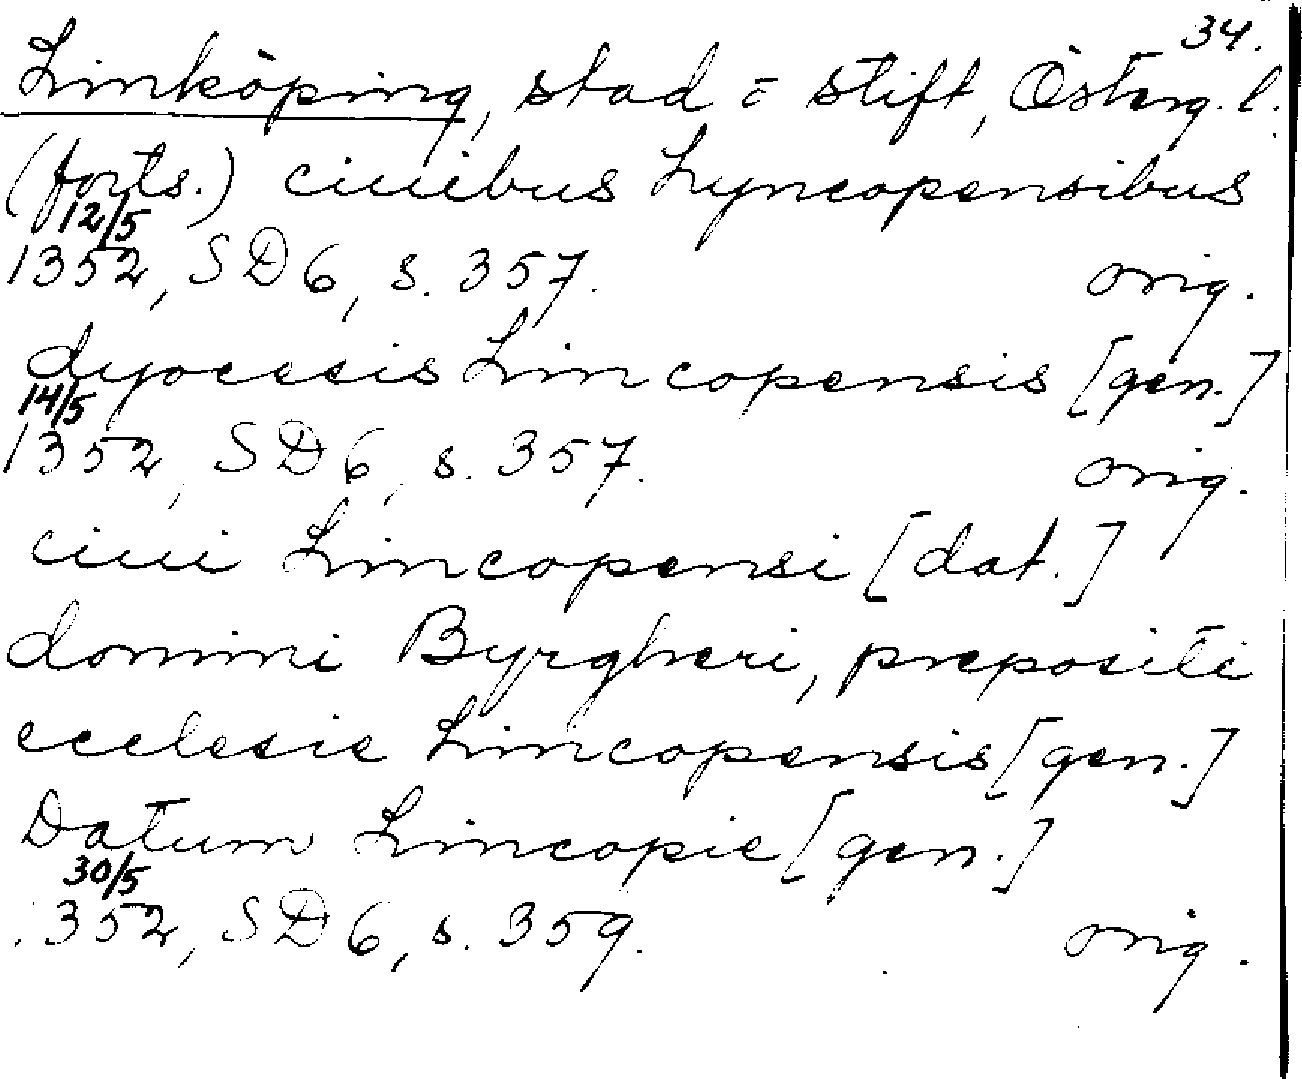 34.
Linköping, stad o stift, Österg. l.
(forts.) ciuibus Lyncopensibus
12/5
1352, SD 6, s. 357. orig.
dyocesis Lincopensis [gen.]
14/5
1352, SD 6, s. 357. orig.
ciui Lincopensi [dat.]
domini Byrgheri, prepositi
ecclesie Lincopensis [gen.]
Datum Lincopie [gen.]
30/5
1352, SD 6, s. 359. orig.